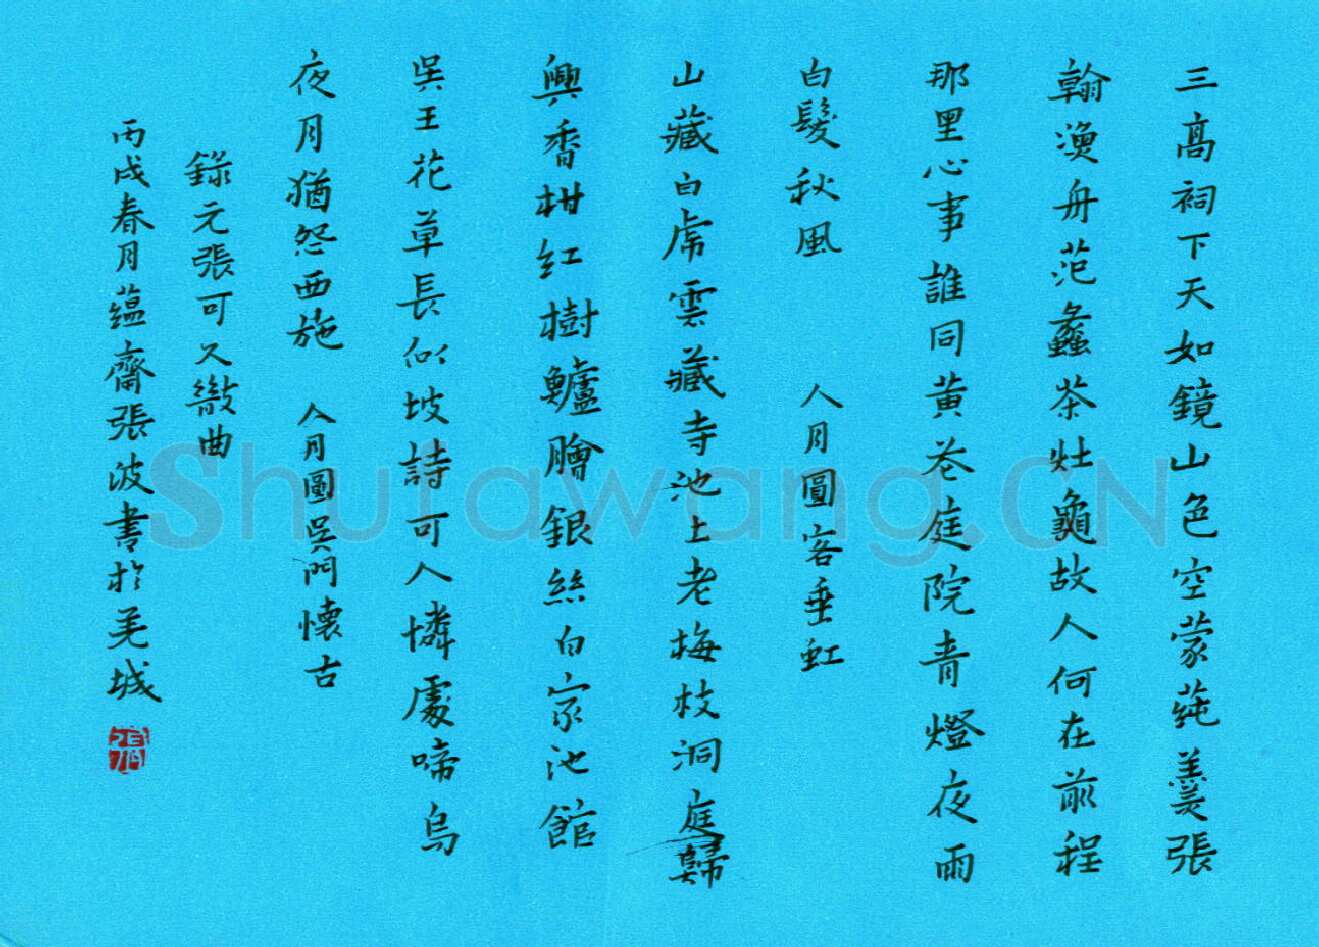 三高祠下天如鏡山色空蒙蒓羹張
翰漁舟范蠡茶灶龜故人何在前程
那里心事誰同黄花庭院青燈夜雨
白髮秋風　人月圓客垂虹
山藏白虎雲藏寺池上老梅枝洞庭歸
興香柑紅樹鱸膾銀絲白家池館
吳王花草長似坡詩可人憐處啼烏
夜月猶怨西施　人月圓吳門懷古
錄元張可久散曲
丙戌春月蕴齋張波書於羌城
Shufawang.CN